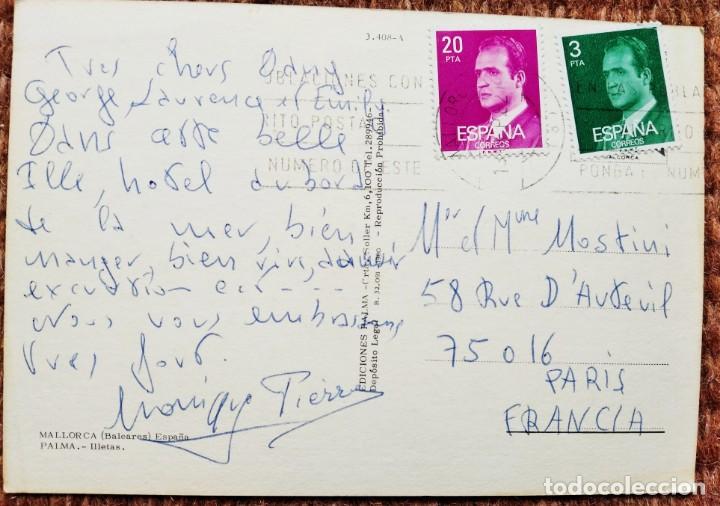 3.408-A
Tres chers Dany
George, Laurence et Emily
Dans cette belle
Ille, hotel au bord
de la mer, bien
manger, bien vivre, dormir
excursion ect----
Nous vous embrassons
tres fort.
Monique Pierre
MALLORCA (Baleares) España
PALMA.- Illetas.
EDICIONES PALMA - Soller Km, 6,100 Tel.
Depósito Legal B. - Reproducción Prohibida
20
PTA
ESPAÑA
CORREOS
3
PTA
ESPAÑA
CORREOS
OBLACIONES CON
RITO POSTAL
NUMERO DE ESTE
PONGA NUM
Mr et Mme Mostini
58 Rue D'Auteuil
75016
PARIS
FRANCIA
todocoleccion